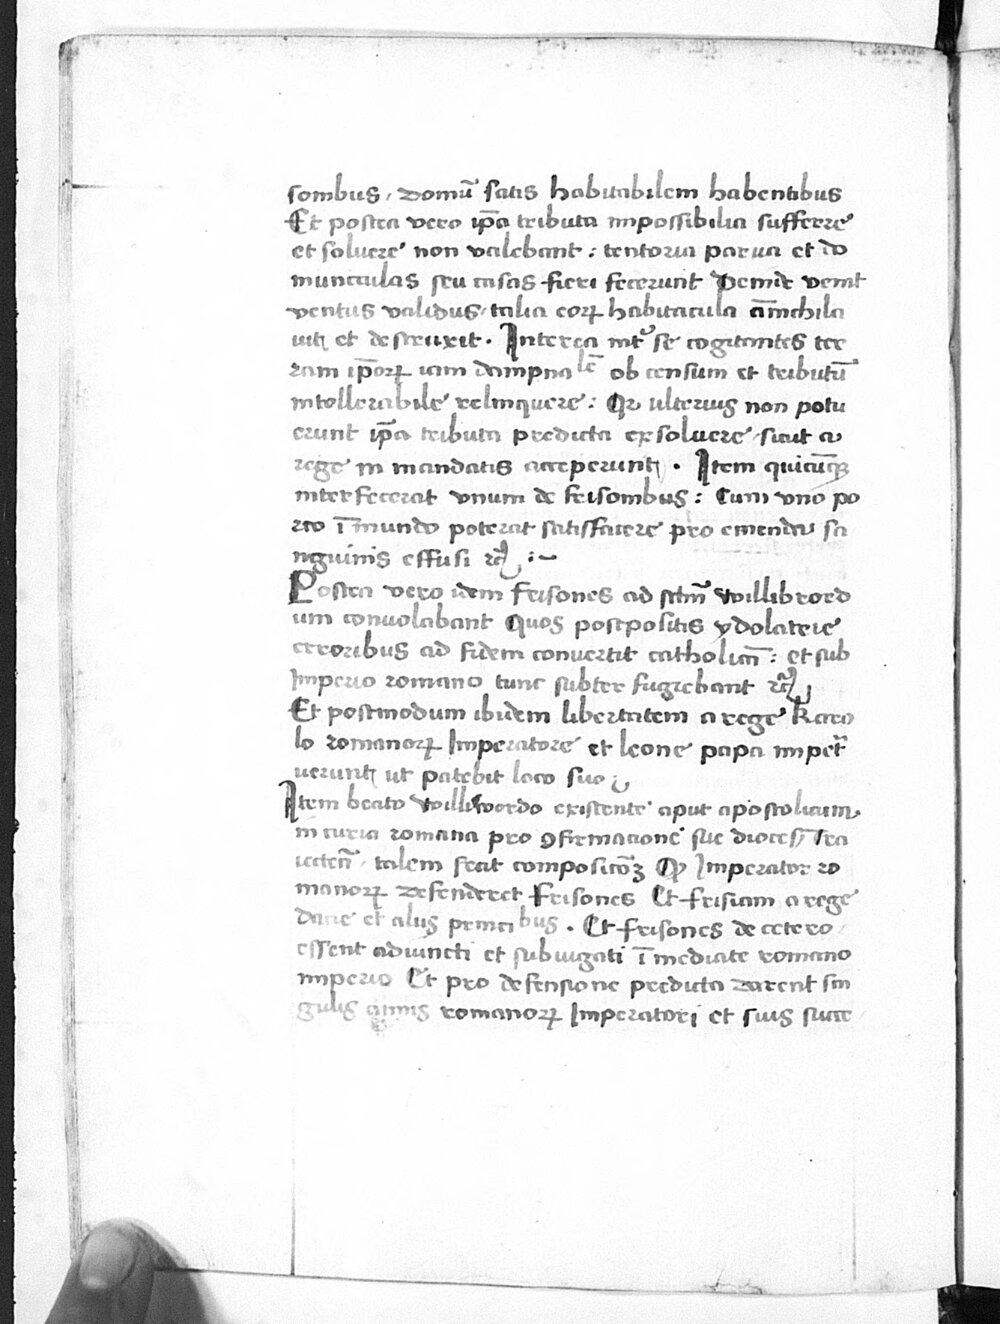 sombus, domū satis habitabilem habentibus
Et postea vero ip̄a tributa impossibilia sufferre
et soluere non valebant : tentoria parua et do
munculas seu casas fieri fecerunt Deinde venit
ventus validus, talia eorꝝ habitacula ān̄ichila
uit et destruxit . Interea int̉ se cogitantes ter
ram ip̄orꝝ iam dampnalē ob censum et tributū
intollerabile relinquere : Qꝛ ulterius non potu
erunt ip̄a tributa predicta exsoluere sicut a
rege in mandatis acceperunt . Item quicūqꝫ
interfecerat vnum de frisombus : Cum vno po
rco īmundo poterat satisfacere pro emenda sa
nguinis effusi ꝛc̄ :~
Postea vero idem frisones ad sctm̄ willibrord
um conuolabant Quos postpositis ydolatrie
erroribus ad fidem conuertit catholicā : et sub
Imperio romano tunc subter fugiebant ꝛc̄
Et postmodum ibidem libertatem a rege Karo
lo romanorꝝ Imperatore et leone papa impet̄
uerunt ut patebit loco suo
Item beato williwordo existente aput apostolicum
in curia romana pro ꝯfirmacione sue diocesꝭ Tra
iecteñ, talem fecit compositōꝫ Qꝙ Imperator ro
manorꝝ defenderet Frisones Et frisiam a rege
dacie et aliis principibus . Et frisones de cetero
essent adiuncti et subiugati īmediate romano
imperio Et pro defensione predicta darent sin
gulis annis romanorꝝ Imperatori et suis succe